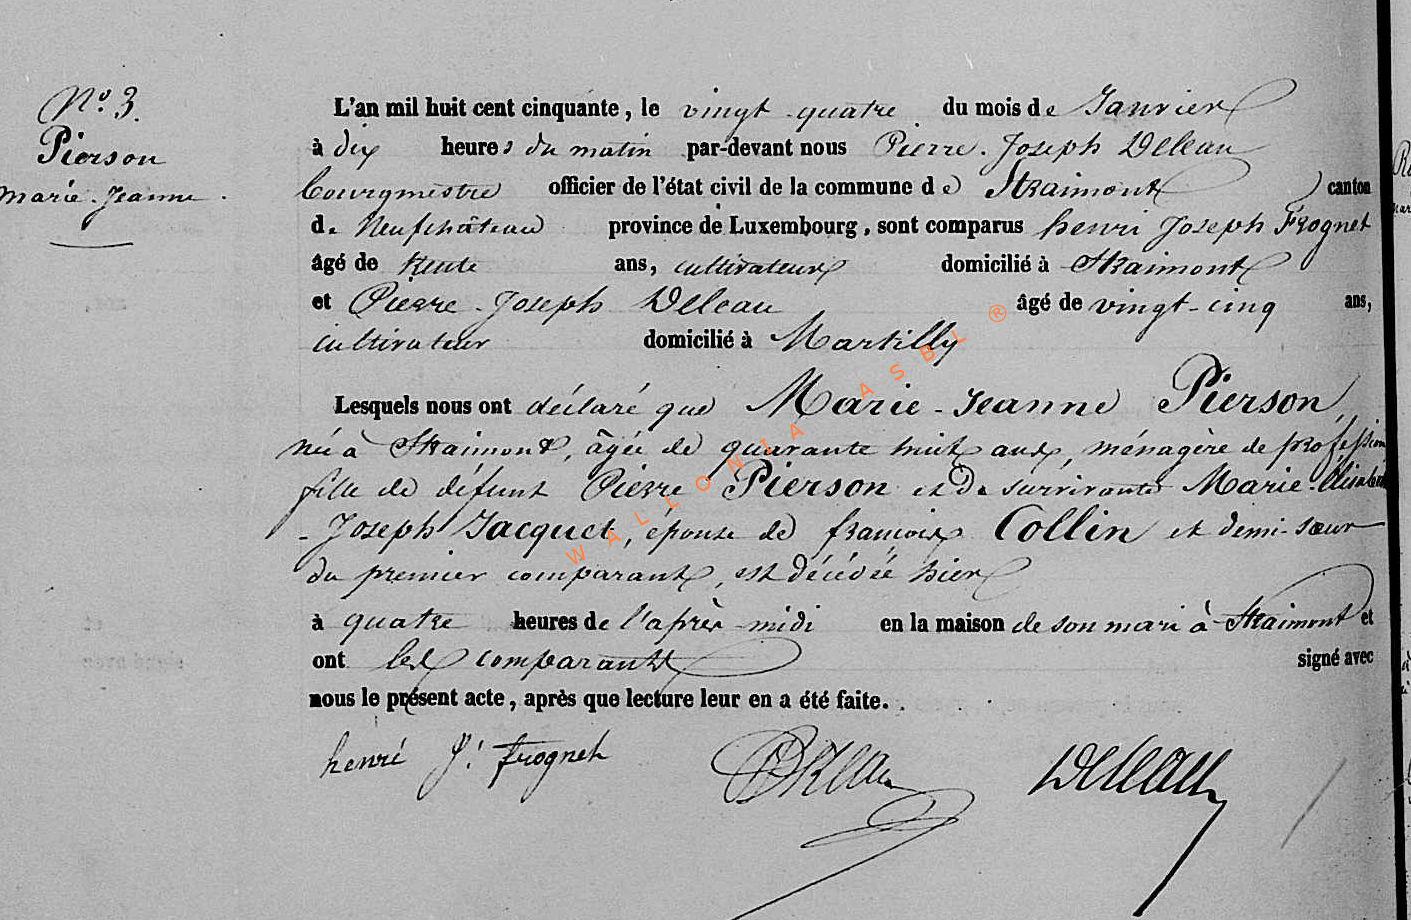 N.o 3.
Pierson
Marie-Jeanne.
L'an mil huit cent cinquante, le vingt-quatre du mois de Janvier
à dix heures du matin par-devant nous Pierre-Joseph Deleau
bourgmestre officier de l'état civil de la commune de Straimont canton
de Neufchâteau province de Luxembourg, sont comparus henri Joseph Frognet
âgé de trente ans, cultivateur domicilié à Straimont
et Pierre-Joseph Deleau âgé de vingt-cinq ans,
cultivateur domicilié à Martilly
Lesquels nous ont déclaré que Marie-Jeanne Pierson,
née à Straimont, âgée de quarante huit ans, ménagère de profession
fille de défunt Pierre Pierson et de survivante Marie-Élisabeth
-Joseph Jacquet, épouse de françois Collin et demi-sœur
du premier comparant, est décédée hier
à quatre heures de l'après-midi en la maison de son mari à Straimont et
ont les comparants signé avec
nous le présent acte, après que lecture leur en a été faite.
henri J. frognet Deleau
WALLONIA ASBL ®